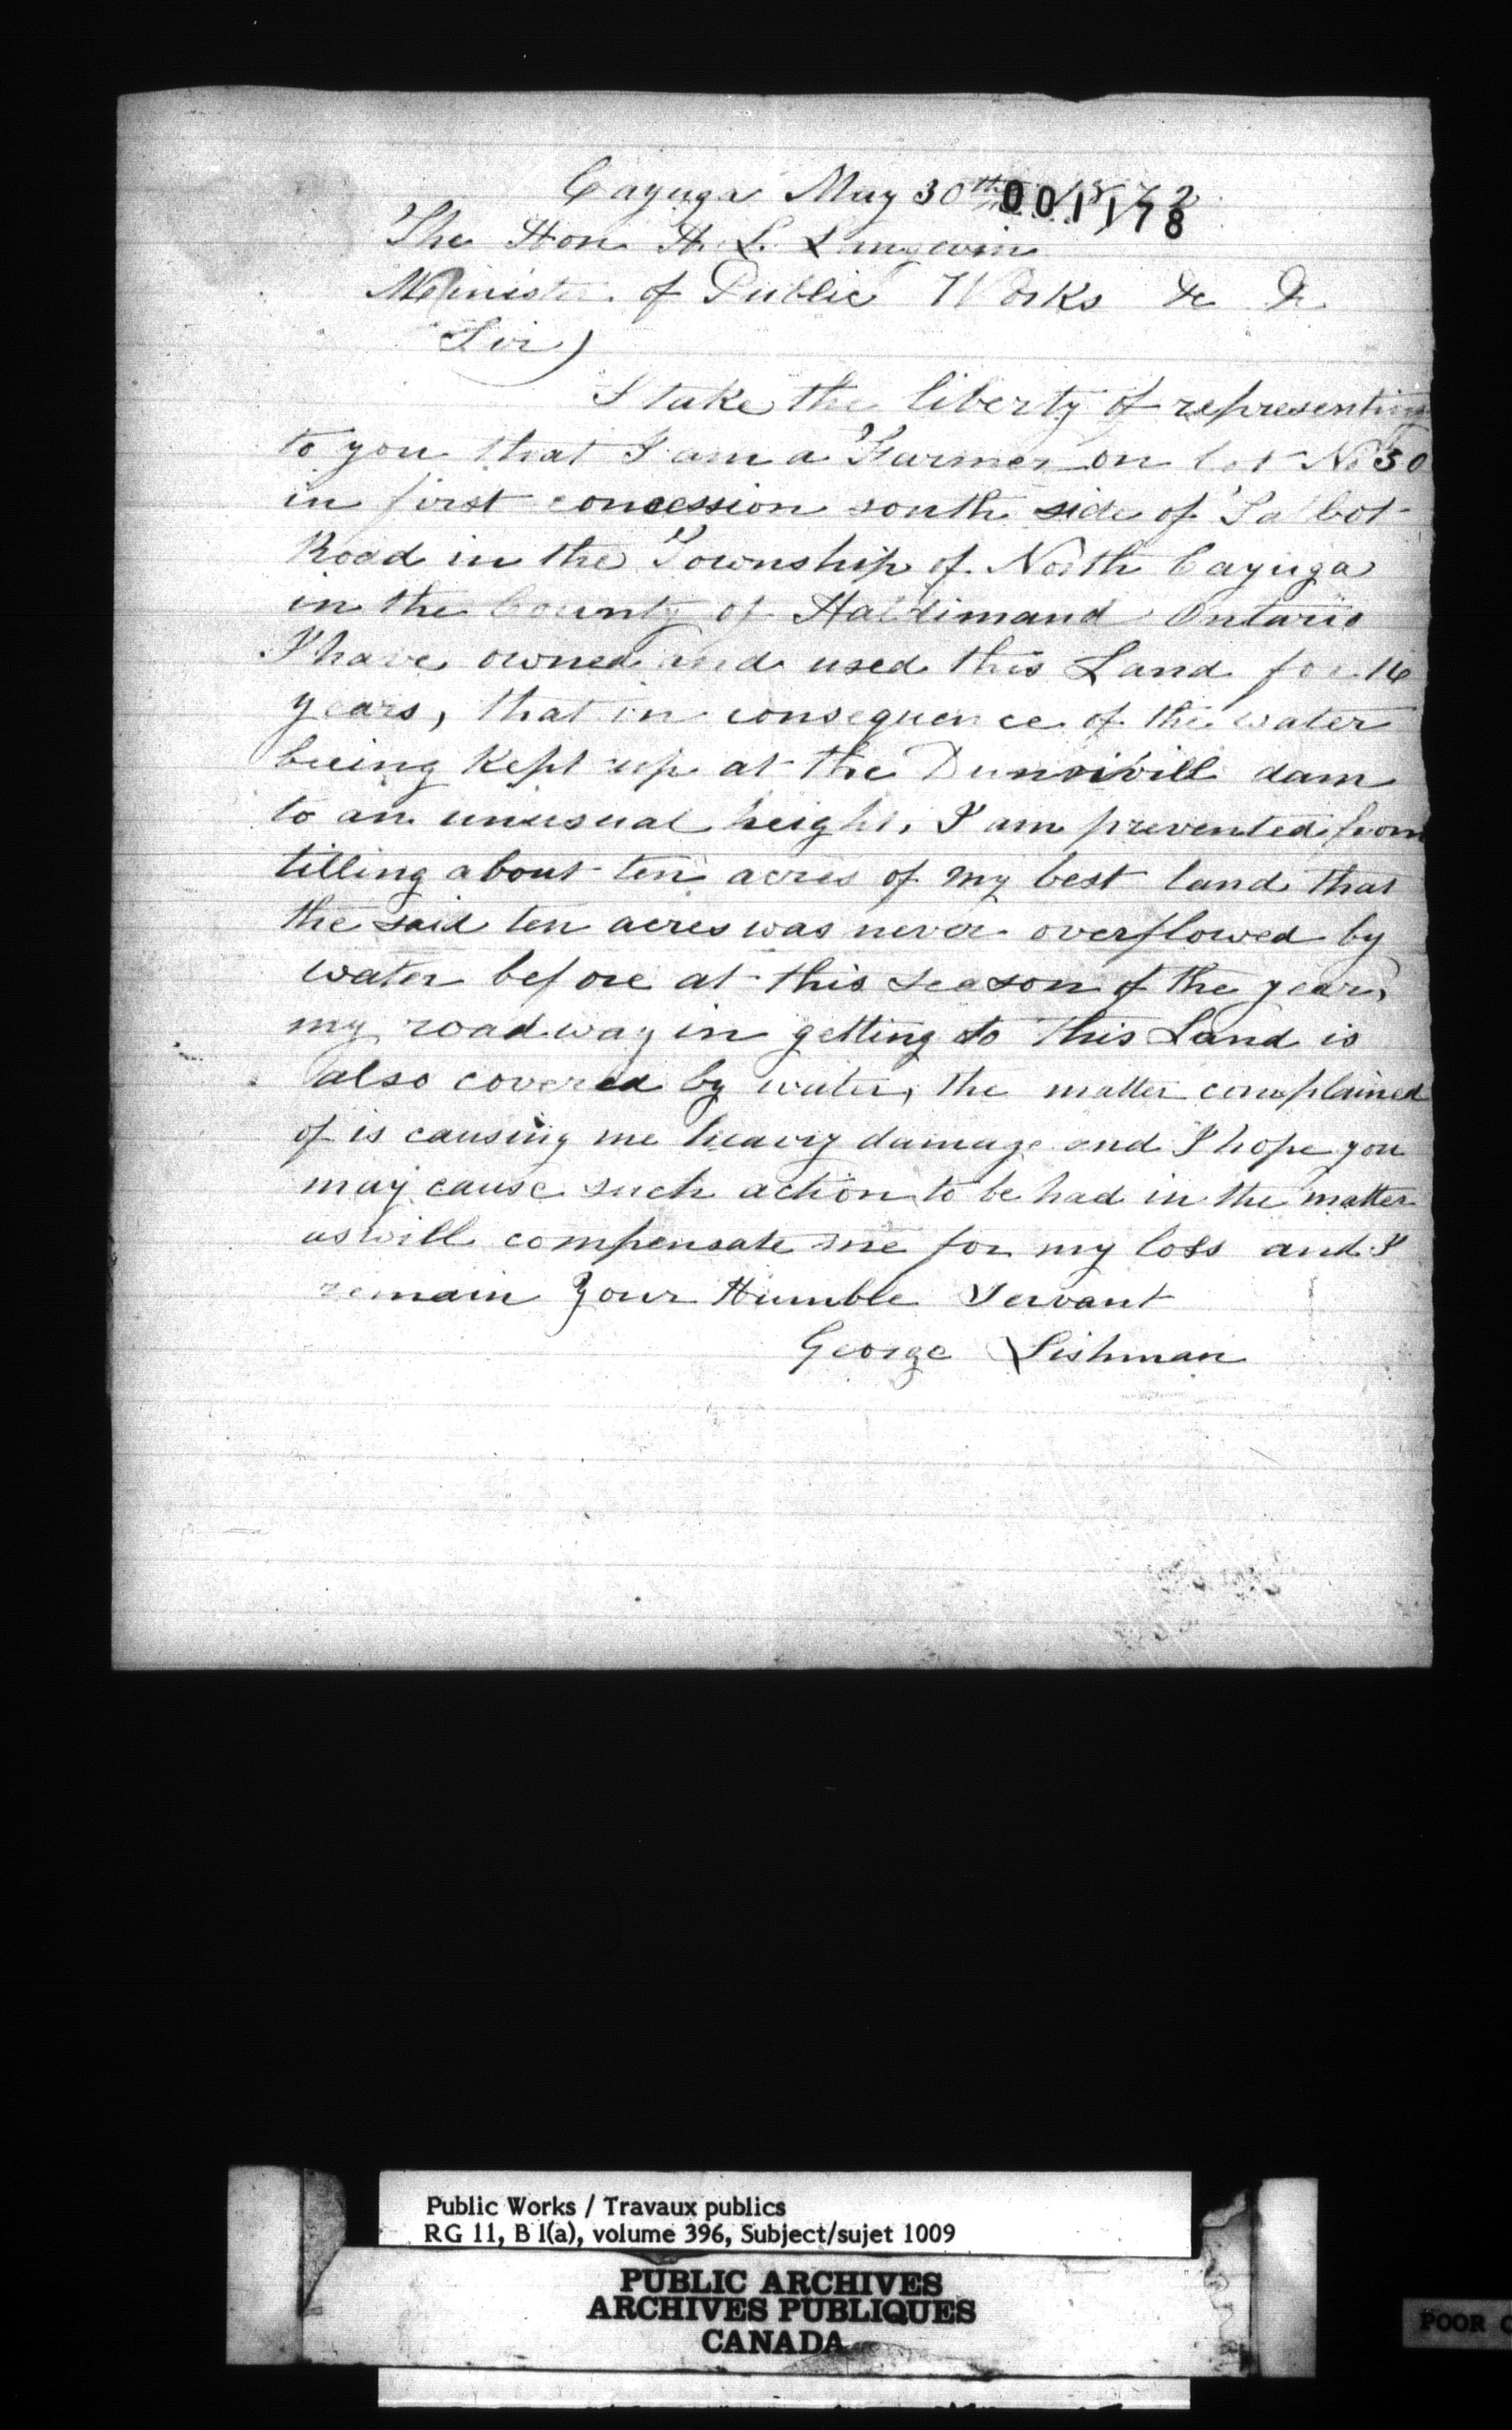 Cayuga May 30th 1872
001178
The Hon. H. L. Langevin
Minister of Public Works &c &c
Sir)
I take the liberty of representing
to you that I am a Farmer on lot No 30
in first concession south side of Talbot
Road in the Township of North Cayuga
in the County of Haldimand Ontario
I have owned and used this Land for 14
years, that in consequence of the water
being kept up at the Dunnivill dam
to an unusual height, I am prevented from
tilling about ten acres of my best land that
the said ten acres was never overflowed by
water before at this season of the year,
my roadway in getting to this Land is
also covered by water, the matter complained
of is causing me heavy damage and I hope you
may cause such action to be had in the matter
as will compensate me for my loss and I
remain Your Humble Servant
George Lishman
Public Works / Travaux publics
RG 11, B 1(a), volume 396, Subject/sujet 1009
PUBLIC ARCHIVES
ARCHIVES PUBLIQUES
CANADA
POOR